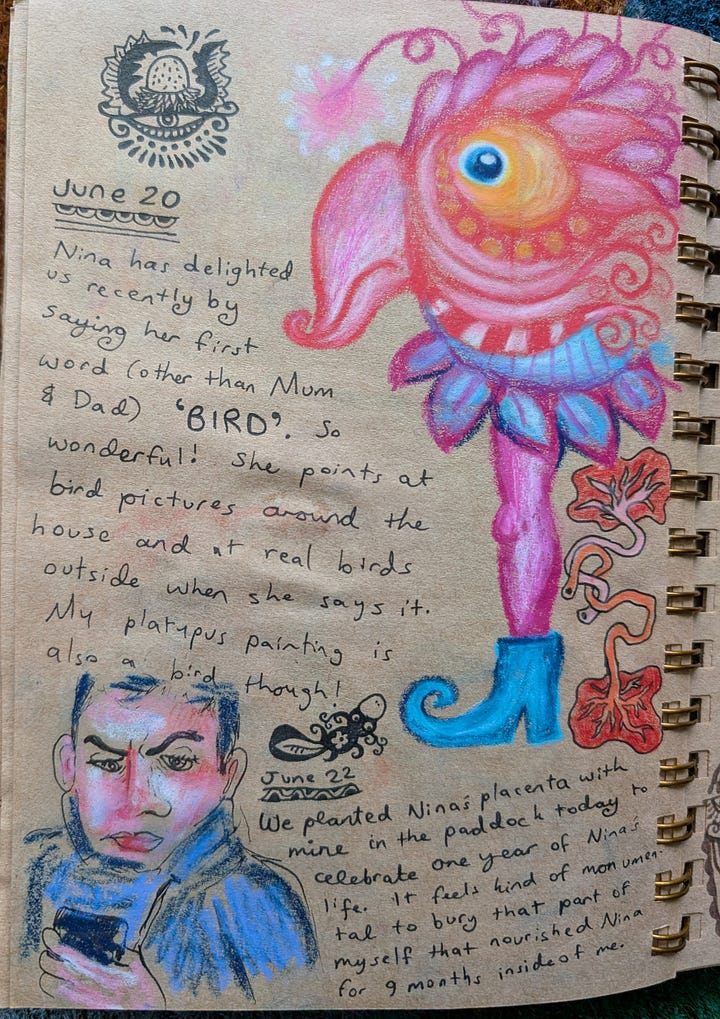 June 20
Nina has delighted
us recently by
saying her first
word (other than Mum
& Dad) 'BIRD'. So
wonderful! She points at
bird pictures around the
house and at real birds
outside when she says it.
My platypus painting is
also a bird though!
June 22
We planted Nina's placenta with
mine in the paddock today to
celebrate one year of Nina's
life. It feels kind of monumen-
tal to bury that part of
myself that nourished Nina
for 9 months inside of me.